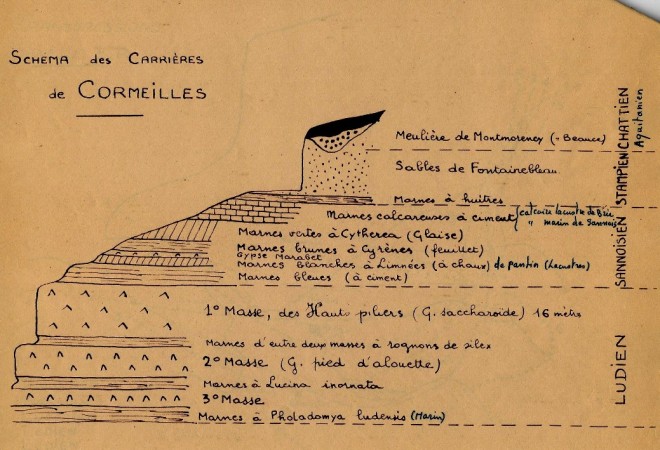 SCHEMA des CARRIÈRES
de CORMEILLES
Meulière de Montmorency (= Beauce)
Sables de Fontainebleau
Marnes à huitres
Marnes calcareuses à ciment
calcaire lacustre de Brie
" marin de Sannois
Marnes vertes à Cytherea (Glaise)
Marnes brunes à Cyrènes (feuillet)
Gypse Marabet
Marnes blanches à Limnées (à chaux) de pantin (Lacustres)
Marnes bleues (à ciment)
1º Masse, des Hauts piliers (G. saccharoïde) 16 mètres
Marnes d'entre deux masses à rognons de silex
2º Masse (G. pied d'alouette)
Marnes à Lucina inornata
3º Masse
Marnes à Pholadomya ludensis (Marin)
CHATTIEN
Aquitanien
STAMPIEN
SANNOISIEN
LUDIEN